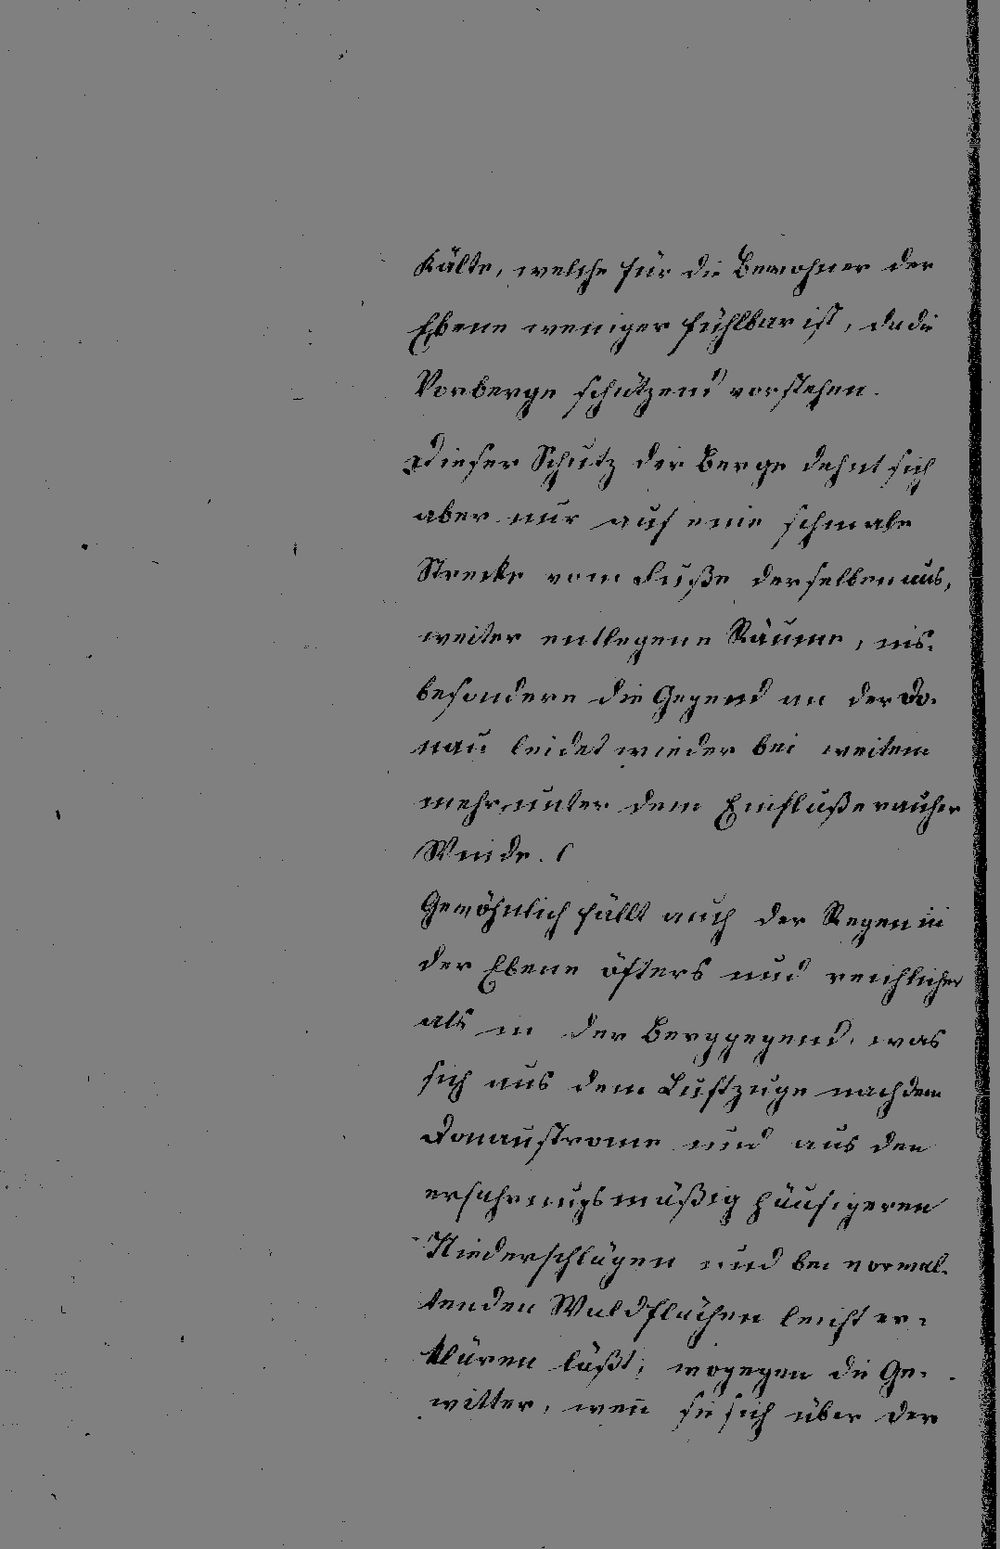 Kälte, welche für die Bewohner der
Ebene weniger fühlbar ist, da die
Vorberge schützend vorstehen.
Dieser Schutz der Berge dehnt sich
aber nur auf eine schmale
Strecke vom Fuße derselben aus,
weiter entlegene Räume, ins-
besondere die Gegend an der Do-
nau leidet wieder bei weitem
mehr unter dem Einfluße rauher
Winde. (
Gewöhnlich fällt auch der Regen in
der Ebene öfters und reichlicher
als in der Berggegend, was
sich aus dem Luftzuge nach dem
Donaustrome und aus den
erfahrungsmäßig häufigeren
Niederschlägen und bei vorwal-
tenden Waldflächen leicht er-
klären läßt, wogegen die Ge-
witter, wen̄ sie sich über der